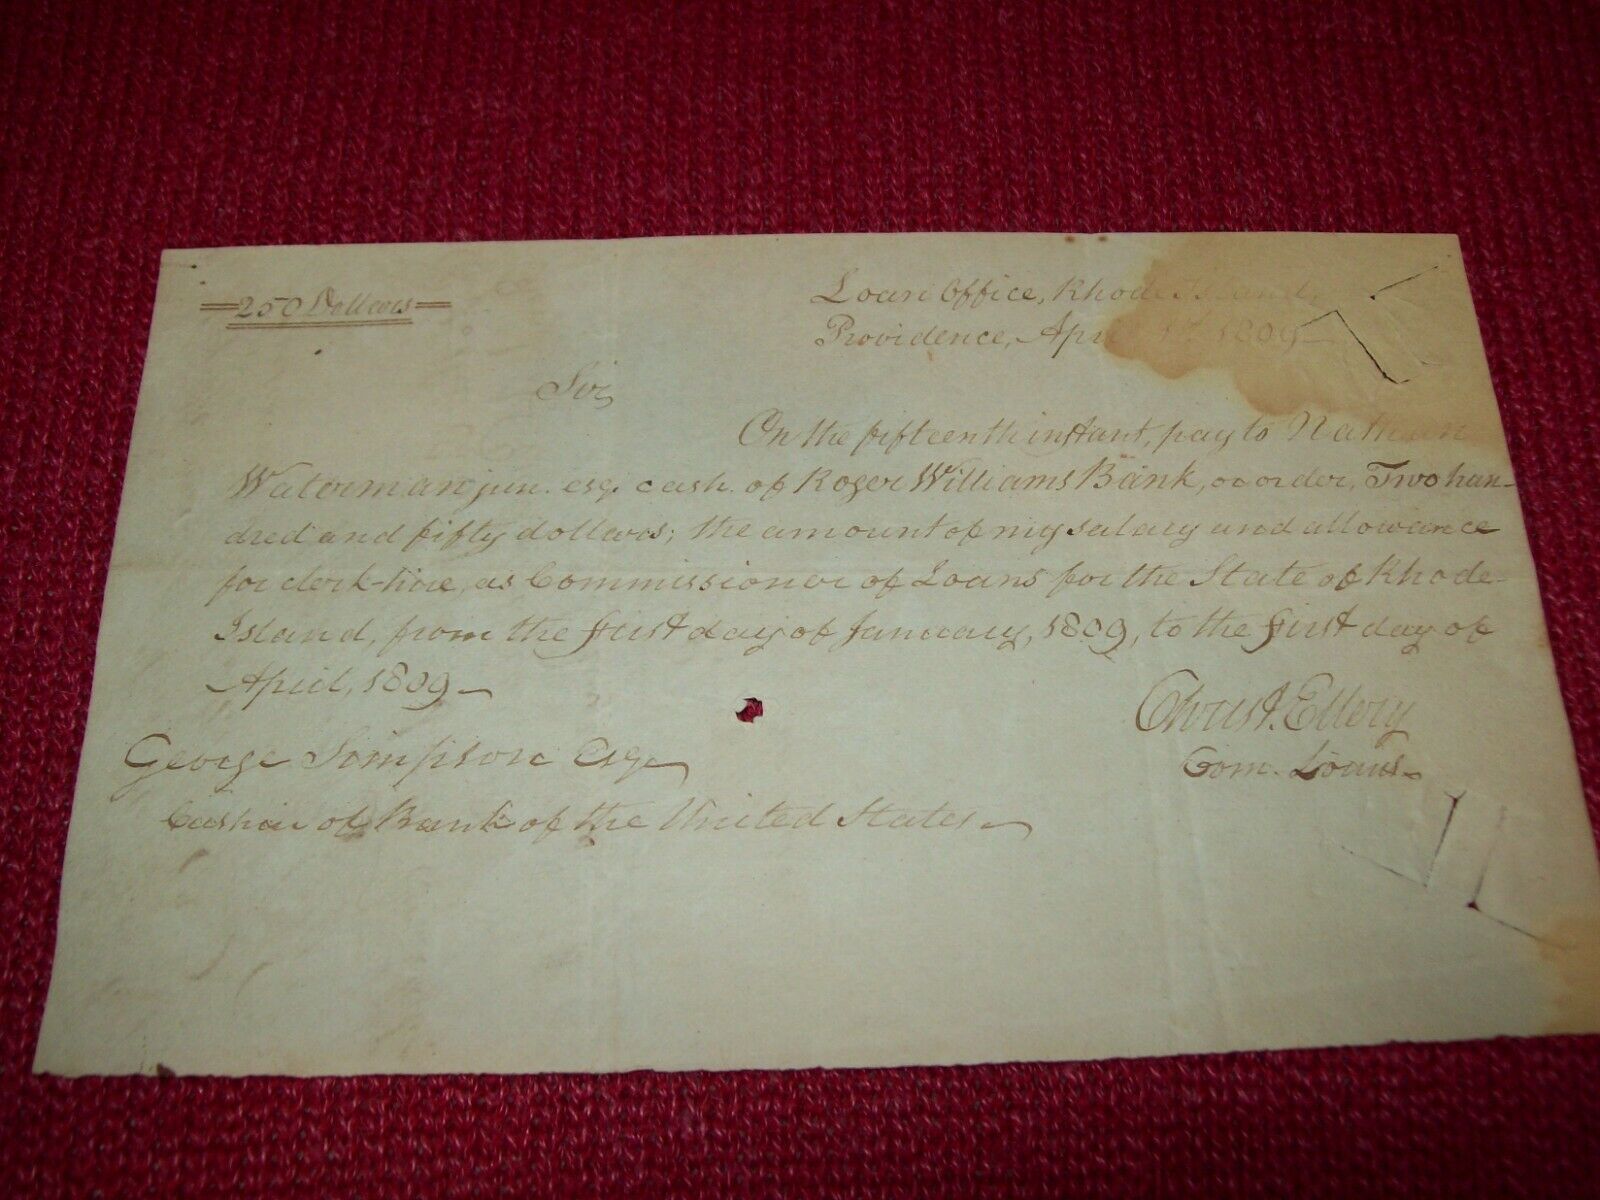 250 Dollars
Loan Office, Rhode Island,
Providence, April 1st, 1809
Sir,
On the fifteenth instant, pay to Nathan
Waterman jun. esq. cash. of Roger Williams Bank, or order, Two hun-
dred and fifty dollars; the amount of my salary and allowance
for clerk-hire, as Commissioner of Loans for the State of Rhode-
Island, from the first day of January, 1809, to the first day of
April, 1809
Christ. Ellery
Com. Loans
George Simpson Esqr
Cashier of Bank of the United States